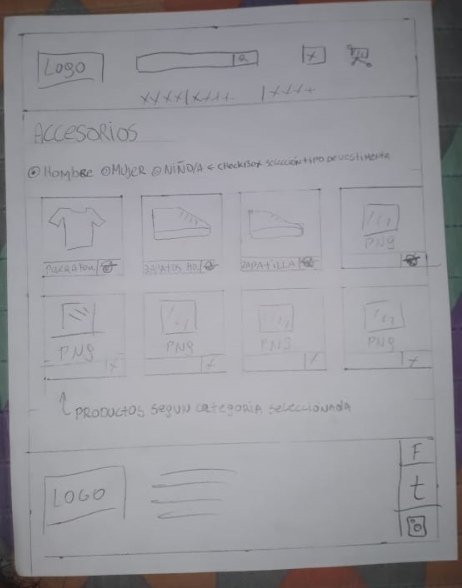 LOGO
ACCESORIOS
Hombre MUJER NIÑO/A ← CheckBox selección tipo de vestimenta
ZAPATILLA
PNG
PNG PNG PNG PNG
PRODUCTOS SEGUN CATEGORIA SELECCIONADA
F
LOGO
t